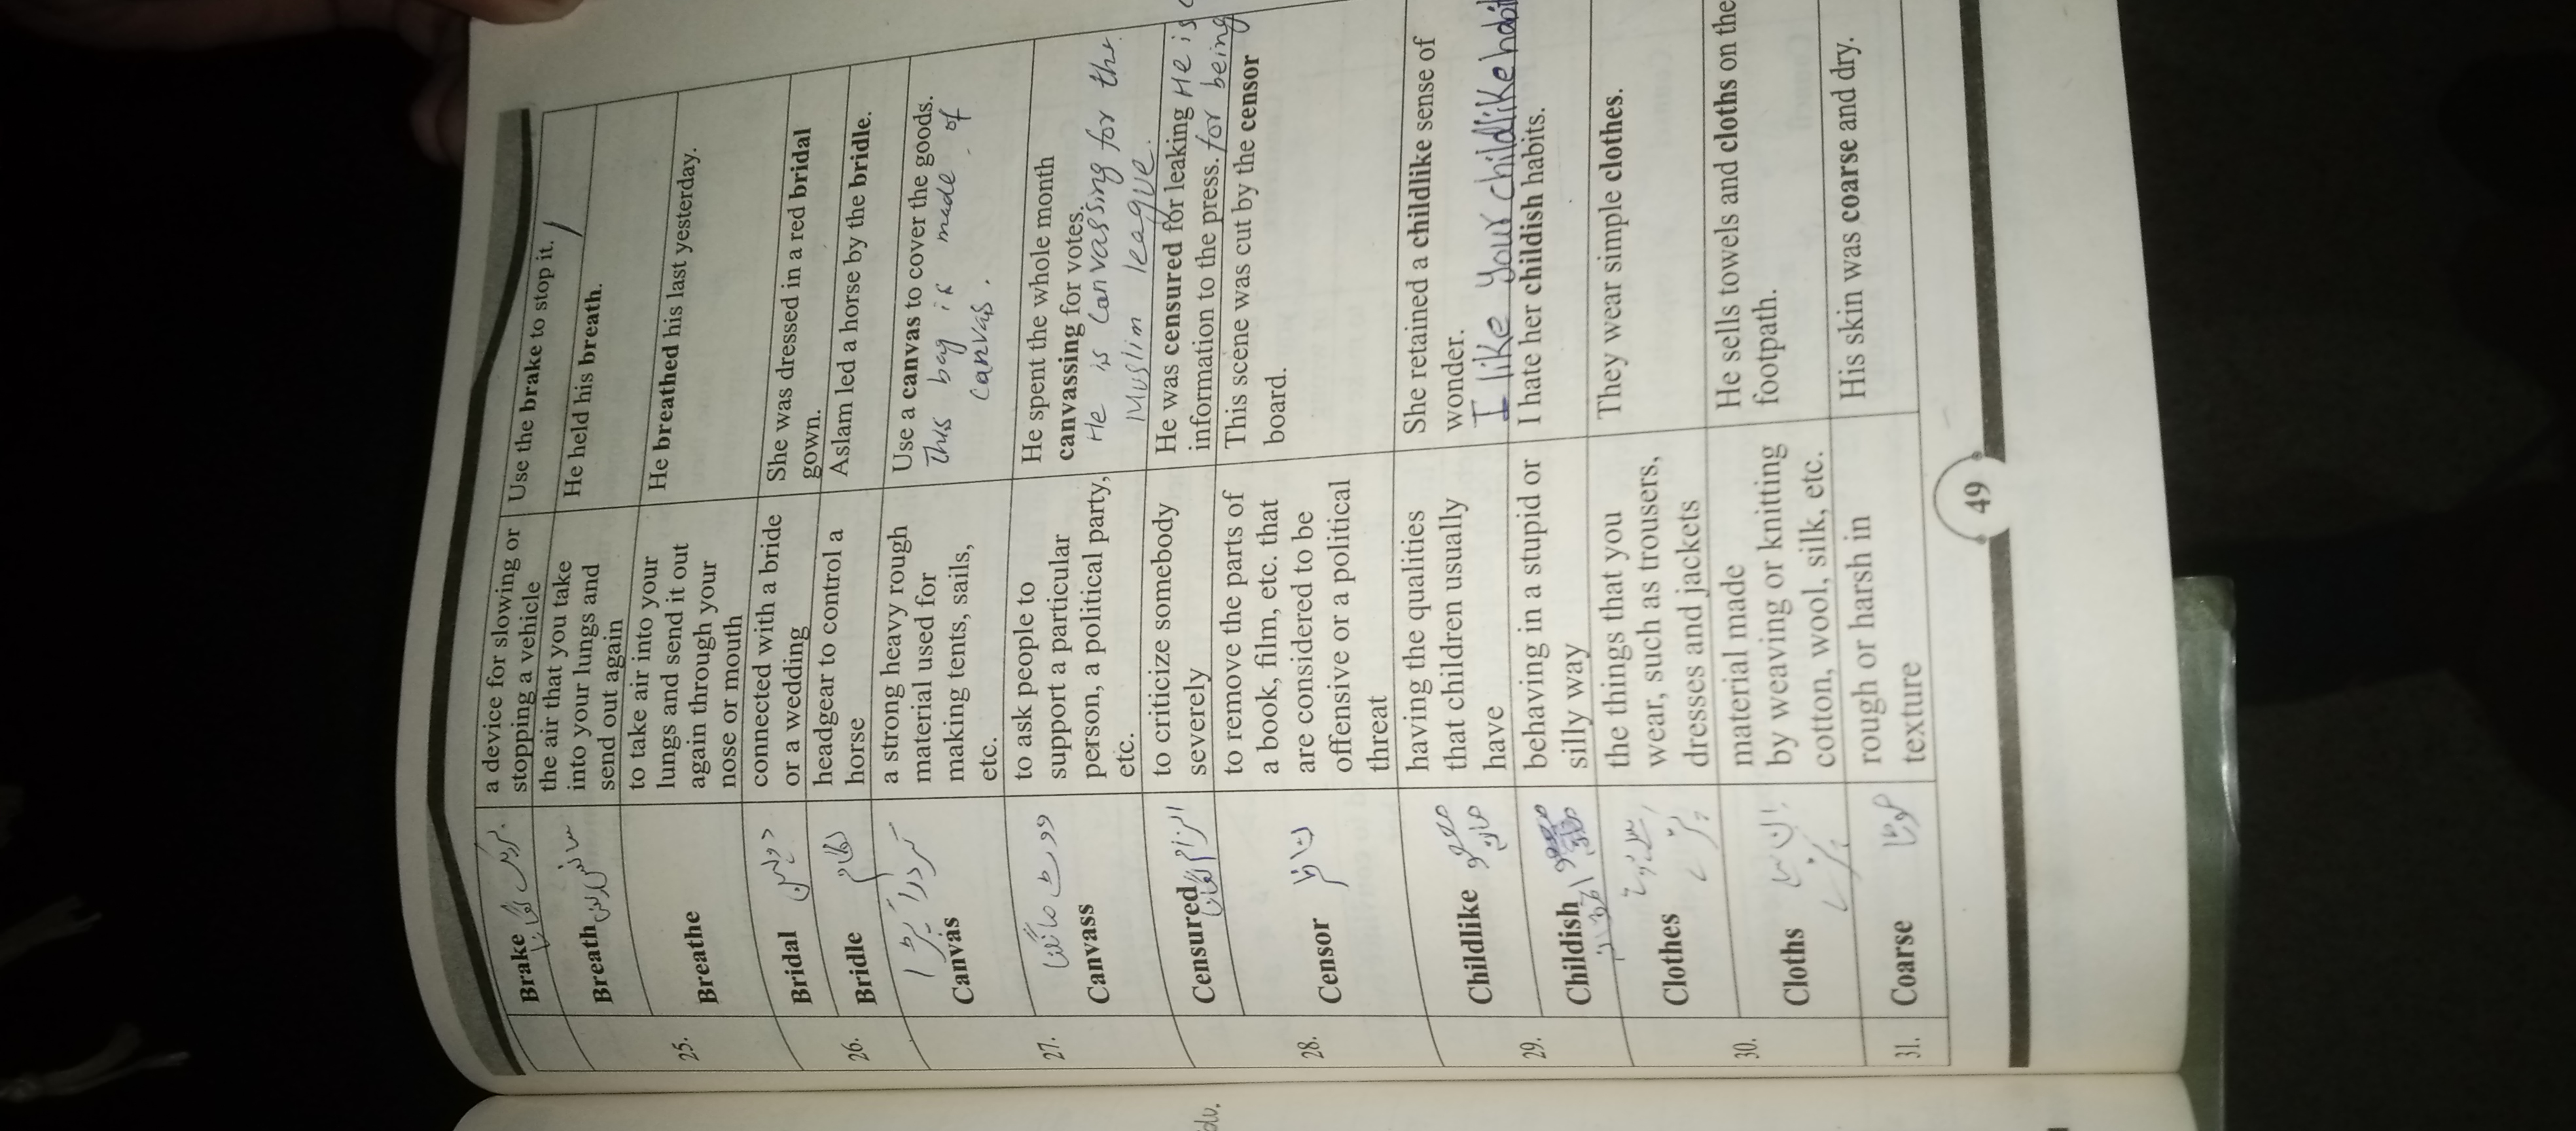 Brake
بریک لگانا
a device for slowing or
stopping a vehicle
Use the brake to stop it.
25.
Breath
سانس
the air that you take
into your lungs and
send out again
He held his breath.
Breathe
to take air into your
lungs and send it out
again through your
nose or mouth
He breathed his last yesterday.
26.
Bridal
دلہن
connected with a bride
or a wedding
She was dressed in a red bridal
gown.
Bridle
لگام
headgear to control a
horse
Aslam led a horse by the bridle.
27.
Canvas
a strong heavy rough
material used for
making tents, sails,
etc.
Use a canvas to cover the goods.
This bag is made of
canvas.
Canvass
ووٹ مانگنا
to ask people to
support a particular
person, a political party,
etc.
He spent the whole month
canvassing for votes.
He is canvassing for the
Muslim league.
28.
Censured
الزام لگانا
to criticize somebody
severely
He was censured for leaking He is
information to the press. for being
Censor
to remove the parts of
a book, film, etc. that
are considered to be
offensive or a political
threat
This scene was cut by the censor
board.
29.
Childlike
having the qualities
that children usually
have
She retained a childlike sense of
wonder.
I like your childlike habit
Childish
behaving in a stupid or
silly way
I hate her childish habits.
30.
Clothes
the things that you
wear, such as trousers,
dresses and jackets
They wear simple clothes.
Cloths
material made
by weaving or knitting
cotton, wool, silk, etc.
He sells towels and cloths on the
footpath.
31.
Coarse
rough or harsh in
texture
His skin was coarse and dry.
49